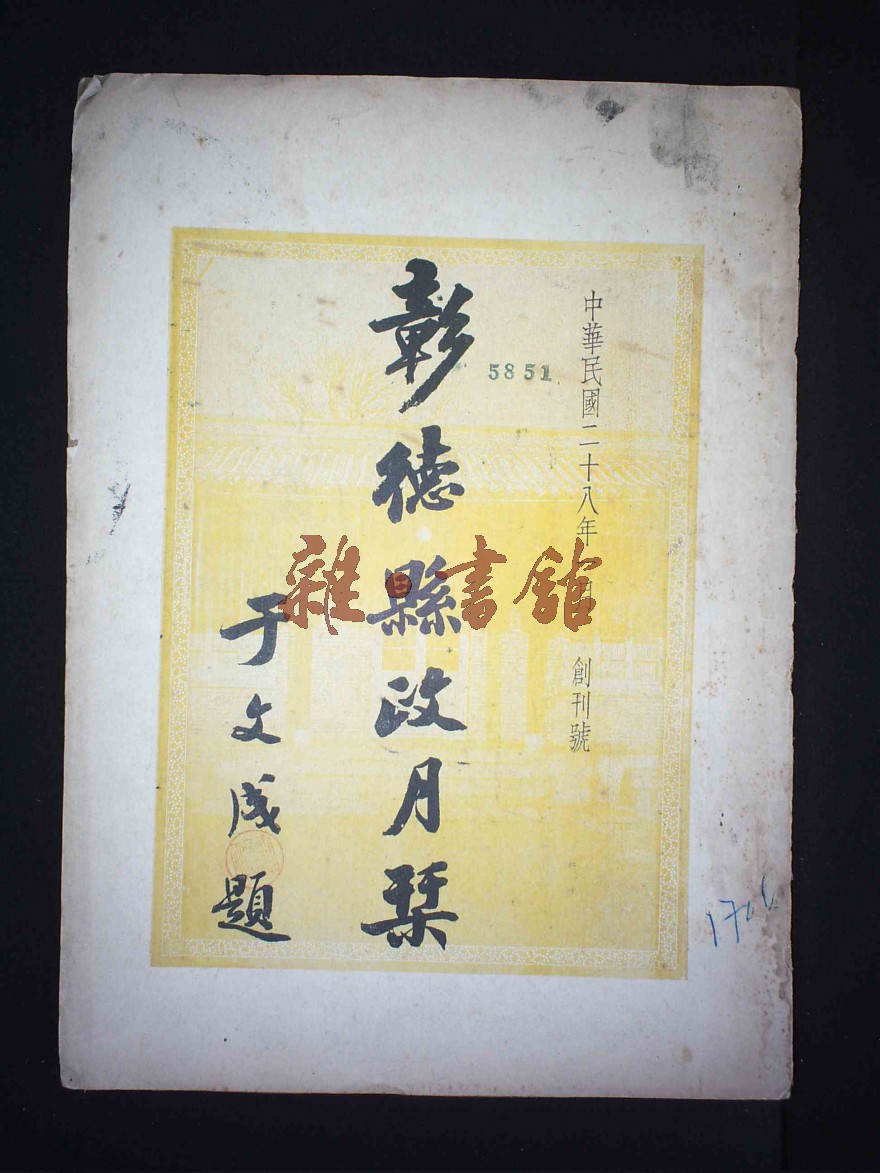 中華民國二十八年 月 創刊號
5851
彰德縣政月栞
于文成題
雜書館